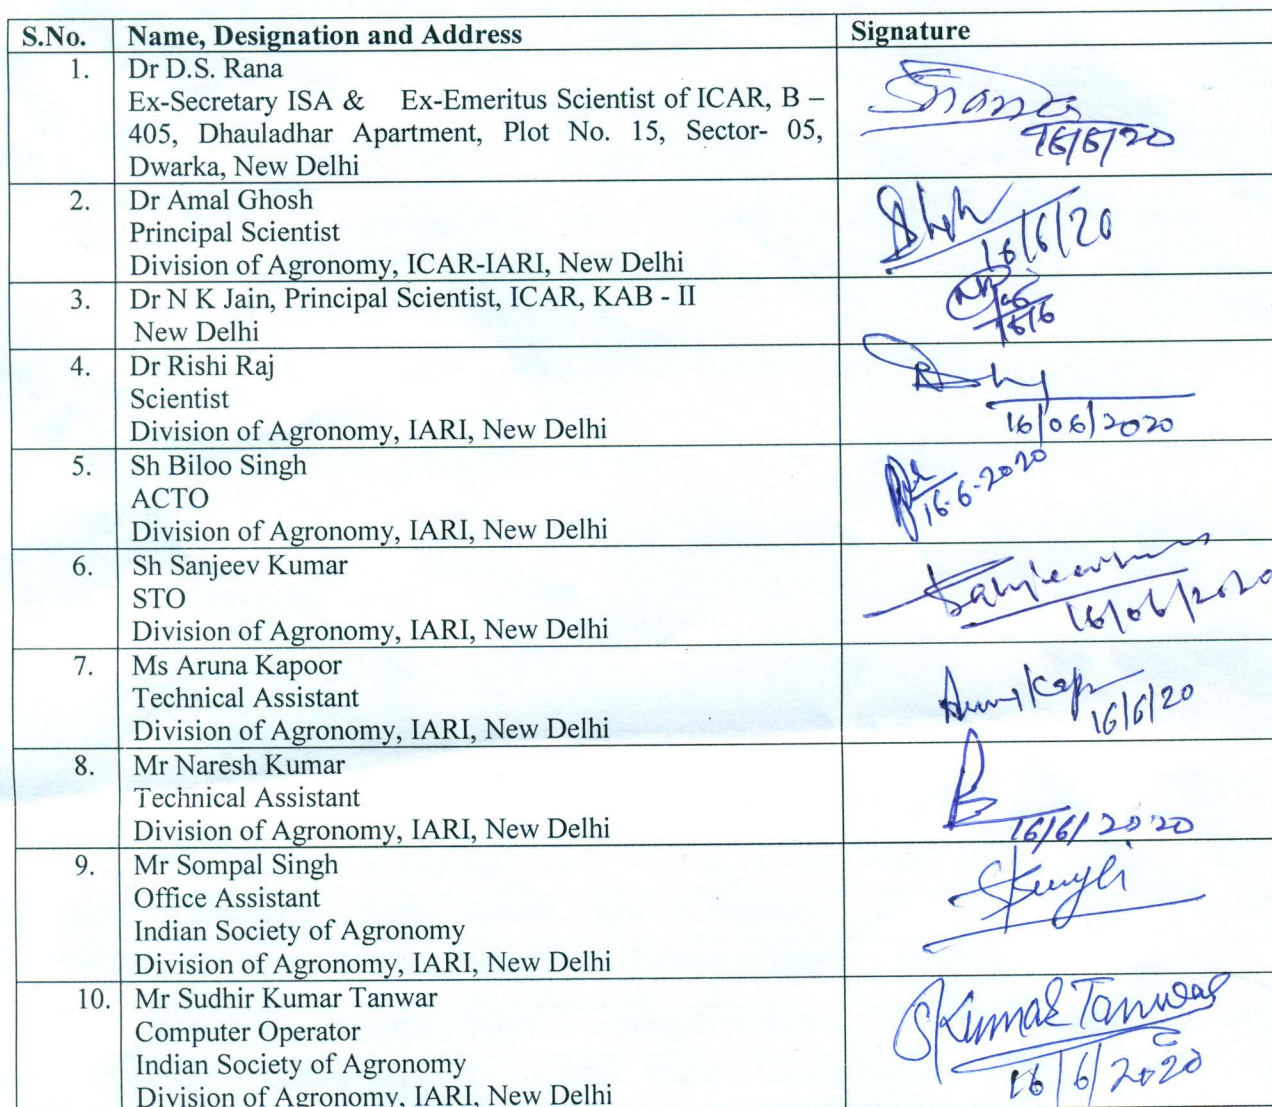 S.No. Name, Designation and Address Signature
1. Dr D.S. Rana
Ex-Secretary ISA & Ex-Emeritus Scientist of ICAR, B –
405, Dhauladhar Apartment, Plot No. 15, Sector- 05,
Dwarka, New Delhi
16/6/20
2. Dr Amal Ghosh
Principal Scientist
Division of Agronomy, ICAR-IARI, New Delhi
16/6/20
3. Dr N K Jain, Principal Scientist, ICAR, KAB - II
New Delhi
16/6
4. Dr Rishi Raj
Scientist
Division of Agronomy, IARI, New Delhi
16/06/2020
5. Sh Biloo Singh
ACTO
Division of Agronomy, IARI, New Delhi
16-6-2020
6. Sh Sanjeev Kumar
STO
Division of Agronomy, IARI, New Delhi
16/06/2020
7. Ms Aruna Kapoor
Technical Assistant
Division of Agronomy, IARI, New Delhi
16/6/20
8. Mr Naresh Kumar
Technical Assistant
Division of Agronomy, IARI, New Delhi
16/6/2020
9. Mr Sompal Singh
Office Assistant
Indian Society of Agronomy
Division of Agronomy, IARI, New Delhi
10. Mr Sudhir Kumar Tanwar
Computer Operator
Indian Society of Agronomy
Division of Agronomy, IARI, New Delhi
SKumar Tanwar
16/6/2020